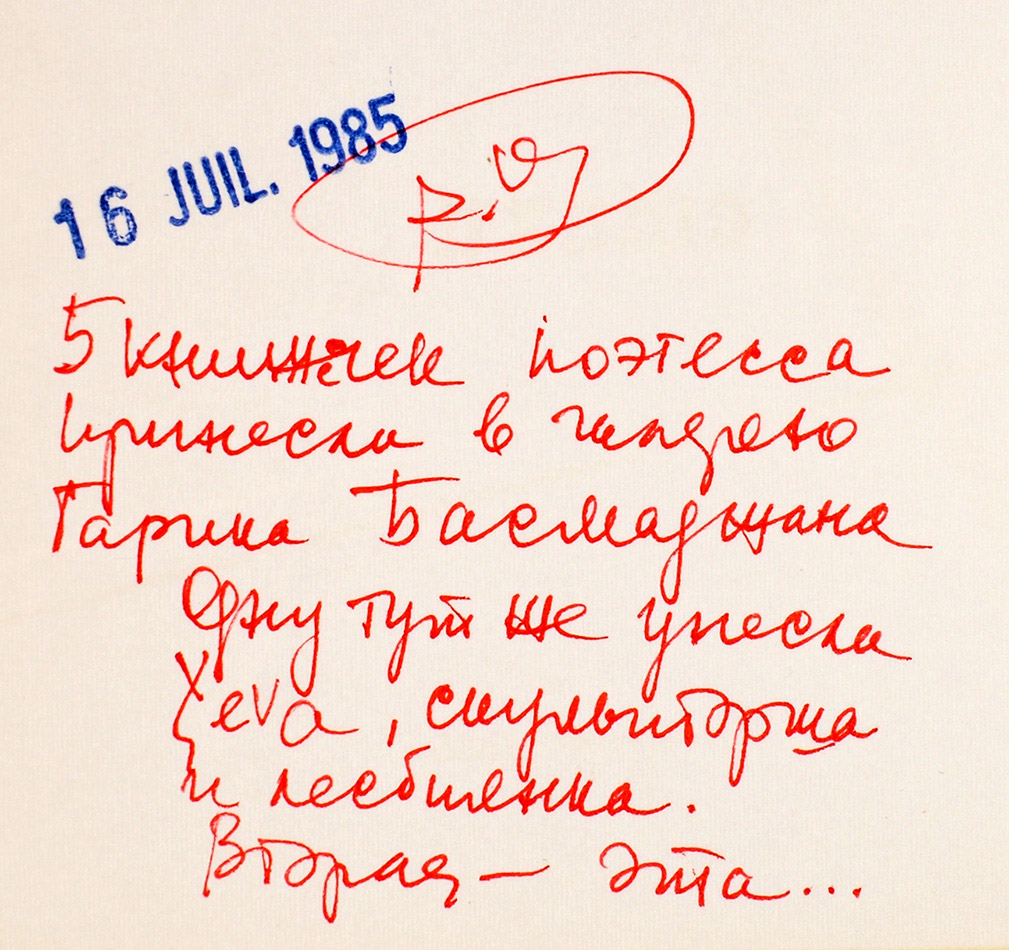 16 JUIL. 1985
5 книжжек поэтесса
принесла в галерею
Гарика Басмаджана
Одну тут же унесла
Xeva, скульпторша
и лесбиянка.
Вторая — эта...